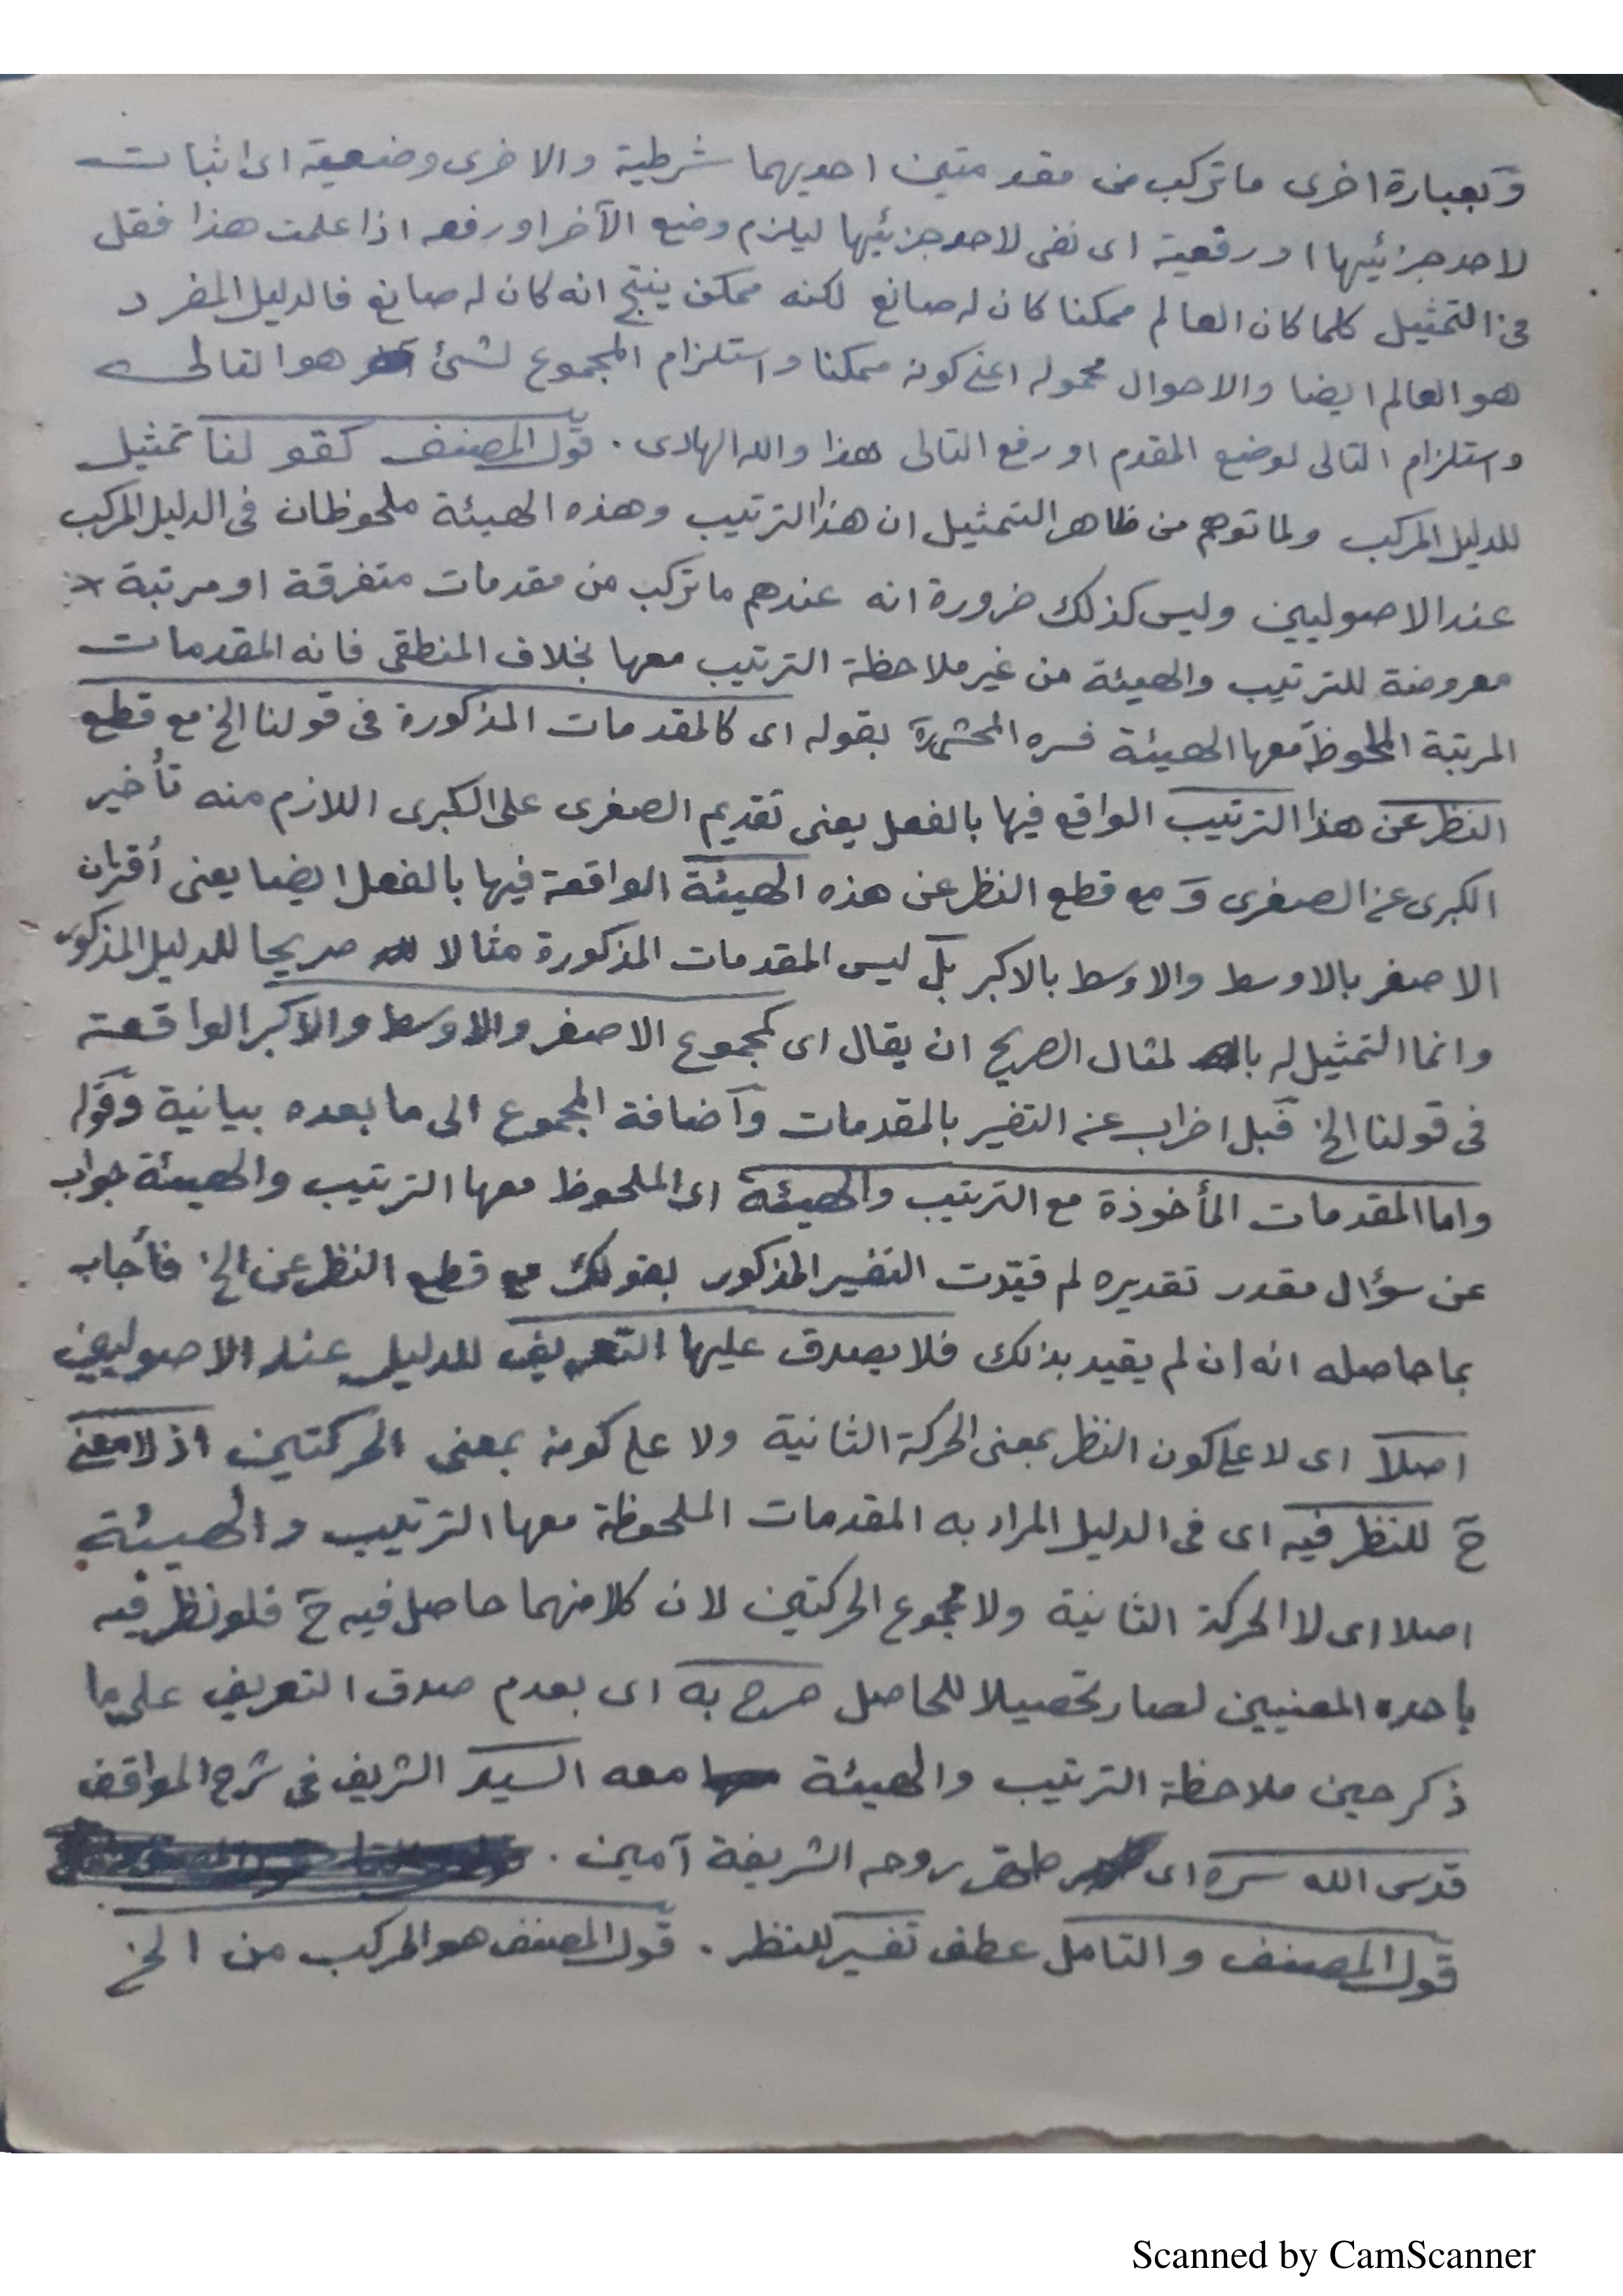 وبعبارة اخرى ما تركب من مقدمتين احديهما شرطية والاخرى وضعية اى اثبات
لاحد جزئيها او رفعية اى نفى لاحد جزئيها ليلزم وضع الآخر او رفعه اذا علمت هذا فقل
فى التمثيل كلما كان العالم ممكنا كان له صانع لكنه ممكن ينتج انه كان له صانع فالدليل المفرد
هو العالم ايضا والاحوال محموله اعنى كونه ممكنا واستلزام المجموع لشئ هو التالى
واستلزام التالى لوضع المقدم او رفع التالى هذا والله الهادى . قول المصنف كقولنا تمثيل
للدليل المركب ولما توهم من ظاهر التمثيل ان هذا الترتيب وهذه الهيئة ملحوظان فى الدليل المركب
عند الاصوليين وليس كذلك ضرورة انه عندهم ما تركب من مقدمات متفرقة او مرتبة
معروضة للترتيب والهيئة من غير ملاحظة الترتيب معها بخلاف المنطقى فانه المقدمات
المرتبة الملحوظ معها الهيئة فسره المحشى بقوله اى كالمقدمات المذكورة فى قولنا الخ مع قطع
النظر عن هذا الترتيب الواقع فيها بالفعل يعنى تقديم الصغرى على الكبرى اللازم منه تأخير
الكبرى عن الصغرى و مع قطع النظر عن هذه الهيئة الواقعة فيها بالفعل ايضا يعنى أقتران
الاصغر بالاوسط والاوسط بالاكبر بل ليس المقدمات المذكورة مثالا صريحا للدليل المذكور
وانما التمثيل له با لمثال الصريح ان يقال اى كمجموع الاصغر والاوسط والاكبر الواقعة
فى قولنا الخ فبل اضراب عن التفسير بالمقدمات واضافة المجموع الى ما بعده بيانية وقوله
واما المقدمات المأخوذة مع الترتيب والهيئة اى الملحوظ معها الترتيب والهيئة جواب
عن سؤال مقدر تقديره لم قيدت التفسير المذكور بقولك مع قطع النظر عن الخ فأجاب
بما حاصله انه ان لم يقيد بذلك فلا يصدق عليها التعريف للدليل عند الاصوليين
اصلا اى لا على كون النظر بمعنى الحركة الثانية ولا على كونه بمعنى الحركتين اذ لا معنى
ح للنظر فيه اى فى الدليل المراد به المقدمات الملحوظة معها الترتيب والهيئة
اصلا اى لا الحركة الثانية ولا مجموع الحركتين لان كلا منهما حاصل فيه ح فلو نظر فيه
باحده المعنيين لصار تحصيلا للحاصل صرح به اى بعدم صدق التعريف على ما
ذكر حين ملاحظة الترتيب والهيئة معه السيد الشريف فى شرح المواقف
قدس الله سره اى روحه الشريفة آمين .
قول المصنف والتامل عطف تفسير للنظر . قول المصنف هو المركب من الخ
Scanned by CamScanner